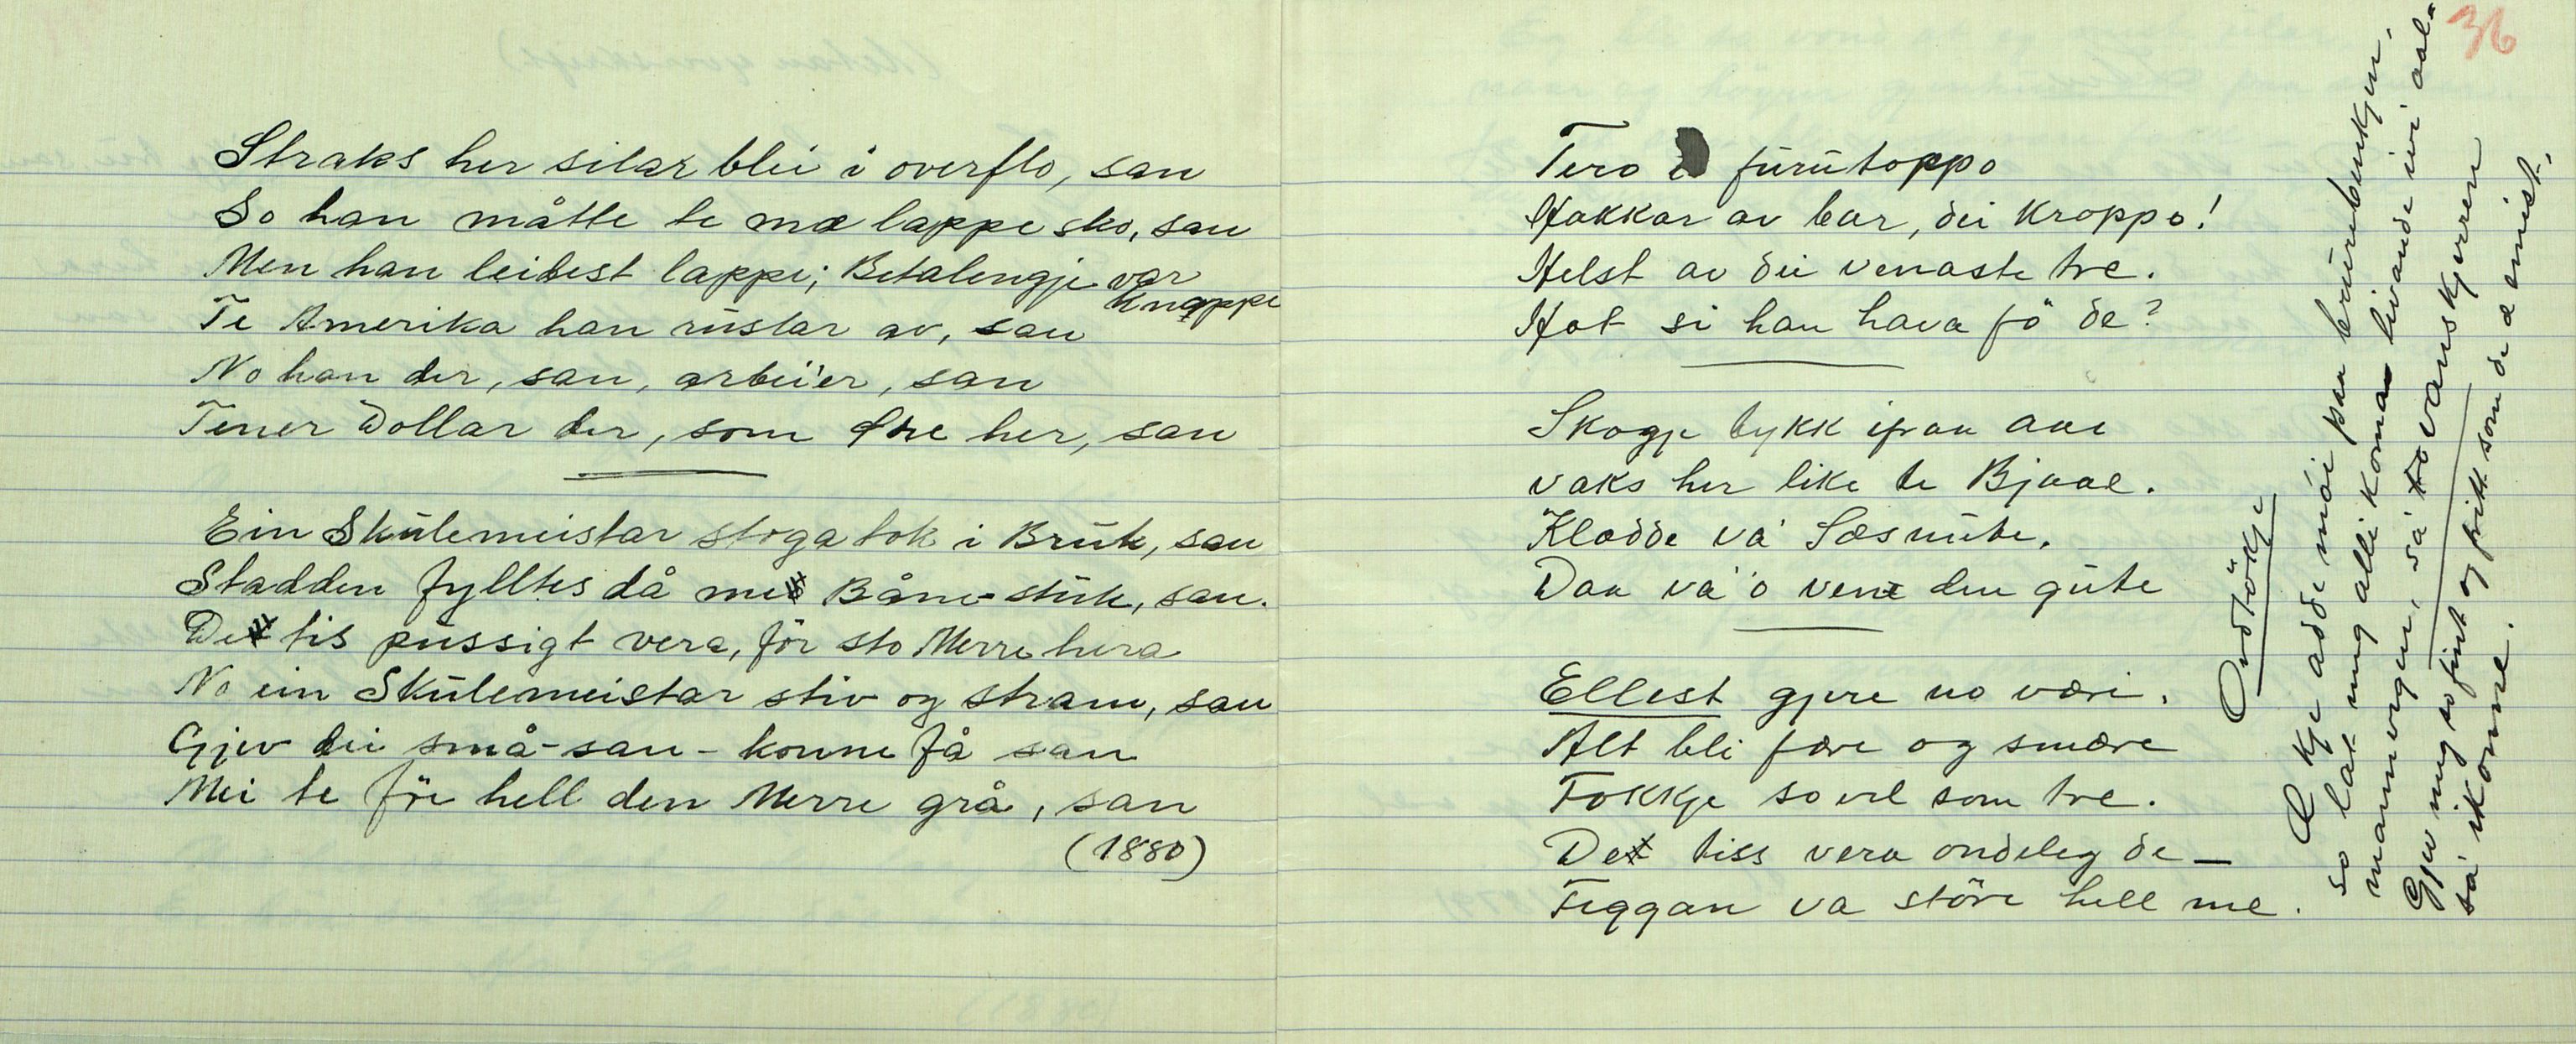 Straks her silar blei i overflo, san
So han måtte te mæ lappe sko, san
Men han leidest lappe; Betalengje var
knappe
Te Amerika han rustar av, san
No han der, san, arbei'er, san
Tener Dollar der, som Øre her, san
Ein Skulemeistar stoga tok i Bruk, san
Stadden fylltes då me Båne-stuk, san.
De tis pussigt vera, för sto Merre hera
No ein Skulemeistar stiv og stram, san
Gjev dei små-san-konne få san
Mei te före hell den Merre grå, san
(1880)
36
Tero furutoppo
Hakkar av bar, dei Kroppo!
Helst av dei venaste tre.
Hot si han hava fö de?
Skogje tykk ifrau aae
vaks her like te Bjaae.
Kladde va' Sæsnute.
Daa va' o vene den gute
Ellest gjere no væri.
Alt bli fære og smære
Fokkje so vel som tre.
De tiss vera ondeleg de —
Feggan va störe hell me.
Ordtökje
Æ kje adde möi paa brurebenkjen,
so lat meg alli koma livande ivi aal-
mannvegen, sa' vanskjerren
Gjev meg so fint og fritt som de æ emist,
sa' ikonne.